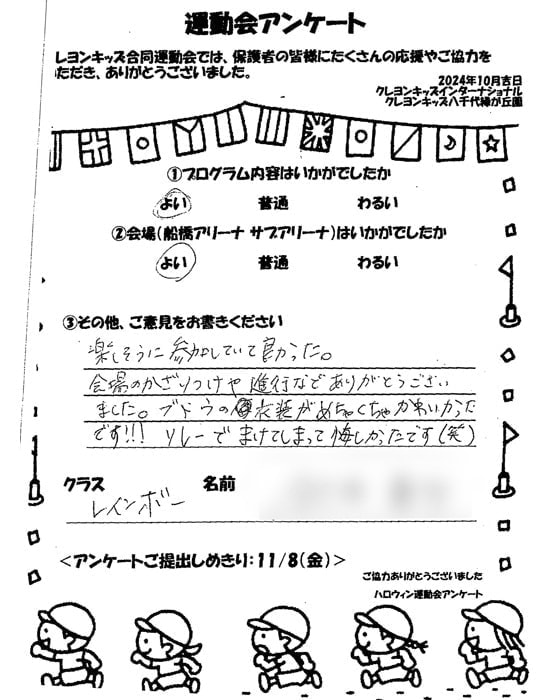 運動会アンケート
レヨンキッズ合同運動会では、保護者の皆様にたくさんの応援やご協力を
いただき、ありがとうございました。
2024年10月吉日
クレヨンキッズインターナショナル
クレヨンキッズ八千代緑が丘園
①プログラム内容はいかがでしたか
よい 普通 わるい
②会場(船橋アリーナ サブアリーナ)はいかがでしたか
よい 普通 わるい
③その他、ご意見をお書きください
楽しそうに参加していて良かった。
会場のかざりつけや進行などありがとうござい
ました。ブドウの衣装がめちゃくちゃかわいかった
です!!! リレーでまけてしまって悔しかったです(笑)
クラス 名前
レインボー
<アンケートご提出しめきり:11/8(金)>
ご協力ありがとうございました
ハロウィン運動会アンケート